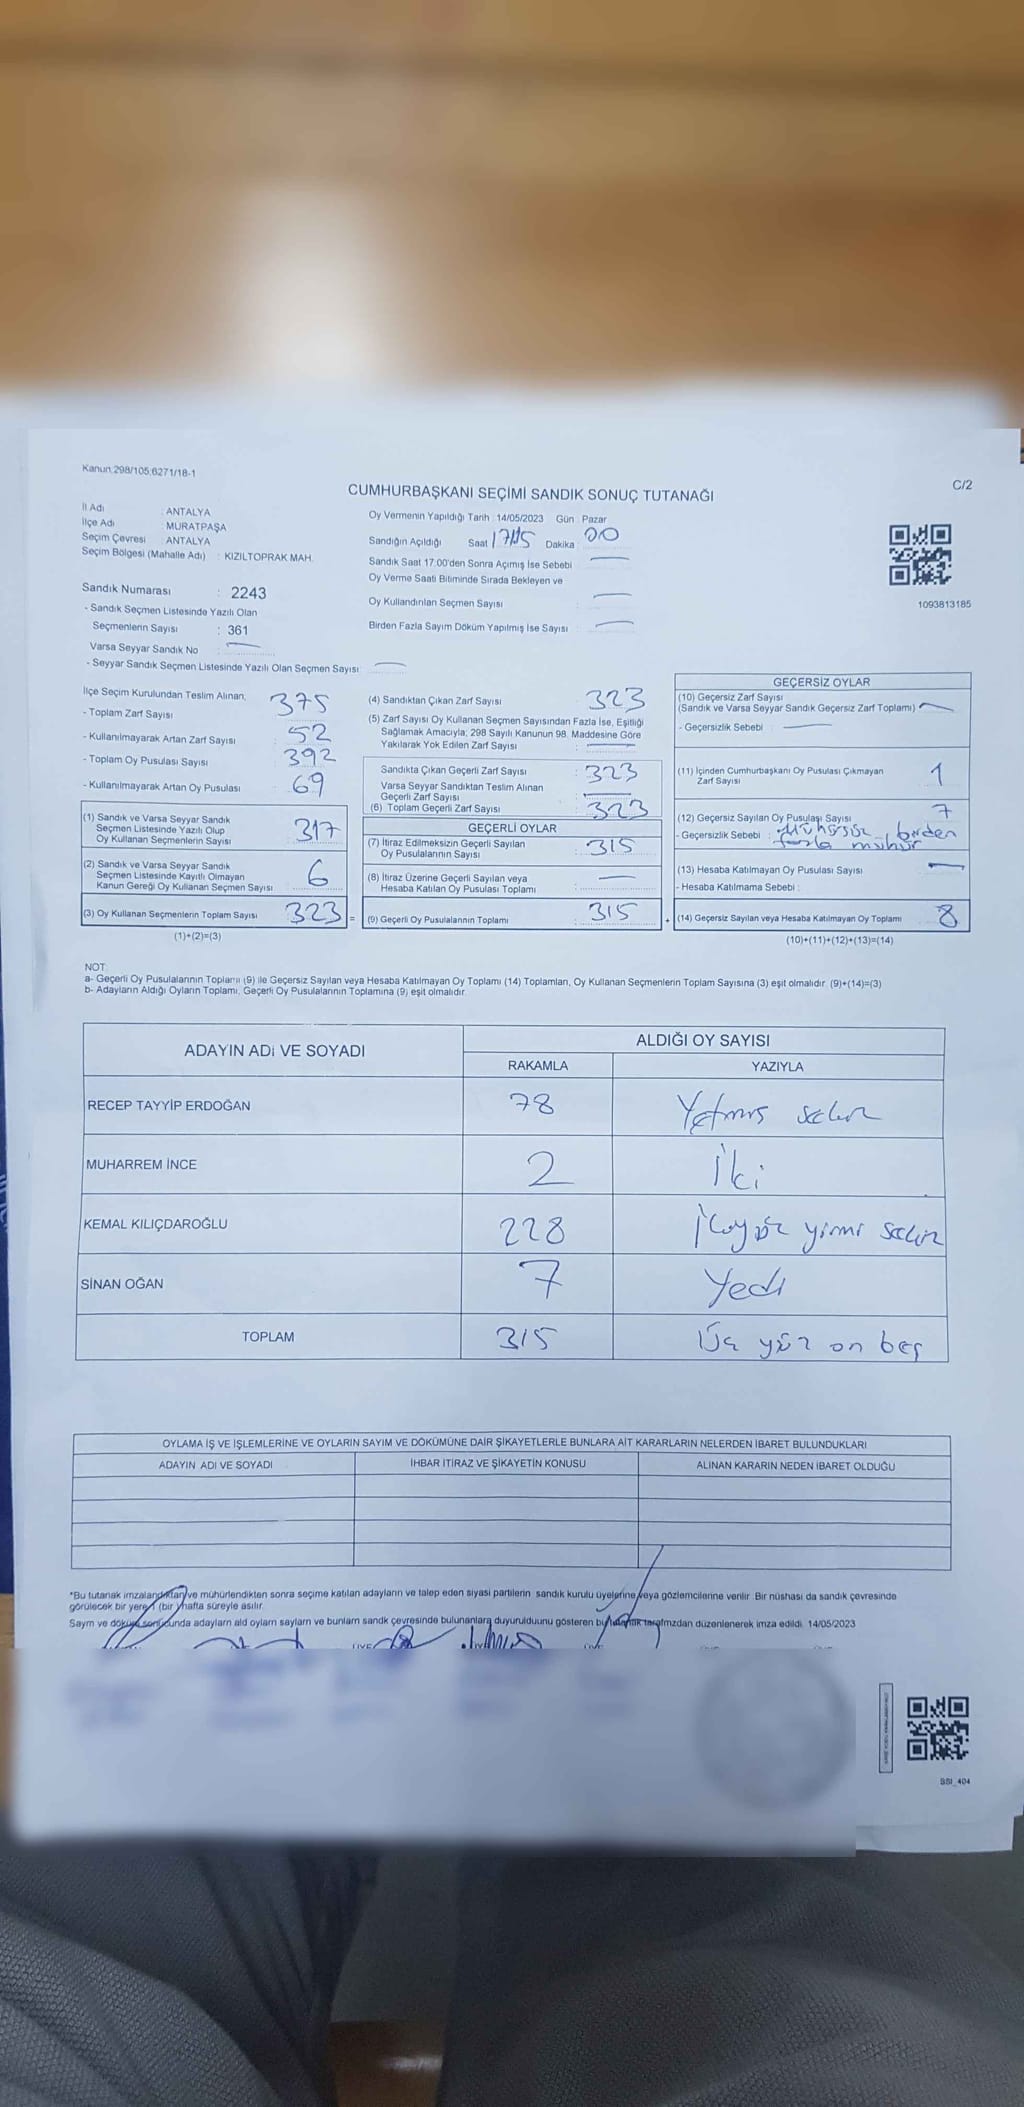 Kanun:298/105,6271/18-1
C/2
CUMHURBAŞKANI SEÇİMİ SANDIK SONUÇ TUTANAĞI
İl Adı : ANTALYA
İlçe Adı : MURATPAŞA
Seçim Çevresi : ANTALYA
Seçim Bölgesi (Mahalle Adı) : KIZILTOPRAK MAH.
Sandık Numarası : 2243
- Sandık Seçmen Listesinde Yazılı Olan
Seçmenlerin Sayısı : 361
Varsa Seyyar Sandık No :
- Seyyar Sandık Seçmen Listesinde Yazılı Olan Seçmen Sayısı :
Oy Vermenin Yapıldığı Tarih : 14/05/2023 Gün : Pazar
Sandığın Açıldığı Saat Dakika : 00
Sandık Saat 17:00'den Sonra Açımış İse Sebebi
Oy Verme Saati Bitiminde Sırada Bekleyen ve
Oy Kullandırılan Seçmen Sayısı
Birden Fazla Sayım Döküm Yapılmış İse Sayısı :
1093813185
İlçe Seçim Kurulundan Teslim Alınan;
- Toplam Zarf Sayısı 375
- Kullanılmayarak Artan Zarf Sayısı : 52
- Toplam Oy Pusulası Sayısı : 392
- Kullanılmayarak Artan Oy Pusulası : 69
(1) Sandık ve Varsa Seyyar Sandık
Seçmen Listesinde Yazılı Olup
Oy Kullanan Seçmenlerin Sayısı 317
(2) Sandık ve Varsa Seyyar Sandık
Seçmen Listesinde Kayıtlı Olmayan
Kanun Gereği Oy Kullanan Seçmen Sayısı 6
(3) Oy Kullanan Seçmenlerin Toplam Sayısı 323 =
(1)+(2)=(3)
(4) Sandıktan Çıkan Zarf Sayısı : 323
(5) Zarf Sayısı Oy Kullanan Seçmen Sayısından Fazla İse, Eşitliği
Sağlamak Amacıyla; 298 Sayılı Kanunun 98. Maddesine Göre
Yakılarak Yok Edilen Zarf Sayısı :
Sandıkta Çıkan Geçerli Zarf Sayısı : 323
Varsa Seyyar Sandıktan Teslim Alınan
Geçerli Zarf Sayısı
(6) Toplam Geçerli Zarf Sayısı : 323
GEÇERLİ OYLAR
(7) İtiraz Edilmeksizin Geçerli Sayılan
Oy Pusulalarının Sayısı : 315
(8) İtiraz Üzerine Geçerli Sayılan veya
Hesaba Katılan Oy Pusulası Toplamı :
(9) Geçerli Oy Pusulalarının Toplamı : 315 +
GEÇERSİZ OYLAR
(10) Geçersiz Zarf Sayısı
(Sandık ve Varsa Seyyar Sandık Geçersiz Zarf Toplamı) :
- Geçersizlik Sebebi :
(11) İçinden Cumhurbaşkanı Oy Pusulası Çıkmayan
Zarf Sayısı 1
(12) Geçersiz Sayılan Oy Pusulası Sayısı 7
- Geçersizlik Sebebi : Mühürsüz, birden
fazla mühür
(13) Hesaba Katılmayan Oy Pusulası Sayısı
- Hesaba Katılmama Sebebi :
(14) Geçersiz Sayılan veya Hesaba Katılmayan Oy Toplamı 8
(10)+(11)+(12)+(13)=(14)
NOT:
a- Geçerli Oy Pusulalarının Toplamı (9) ile Geçersiz Sayılan veya Hesaba Katılmayan Oy Toplamı (14) Toplamları, Oy Kullanan Seçmenlerin Toplam Sayısına (3) eşit olmalıdır. (9)+(14)=(3)
b- Adayların Aldığı Oyların Toplamı, Geçerli Oy Pusulalarının Toplamına (9) eşit olmalıdır.
ADAYIN ADI VE SOYADI
ALDIĞI OY SAYISI
RAKAMLA YAZIYLA
RECEP TAYYİP ERDOĞAN 78 Yetmiş sekiz
MUHARREM İNCE 2 İki
KEMAL KILIÇDAROĞLU 228 İkiyüz yirmi sekiz
SİNAN OĞAN 7 Yedi
TOPLAM 315 Üç yüz on beş
OYLAMA İŞ VE İŞLEMLERİNE VE OYLARIN SAYIM VE DÖKÜMÜNE DAİR ŞİKAYETLERLE BUNLARA AİT KARARLARIN NELERDEN İBARET BULUNDUKLARI
ADAYIN ADI VE SOYADI İHBAR İTİRAZ VE ŞİKAYETİN KONUSU ALINAN KARARIN NEDEN İBARET OLDUĞU
*Bu tutanak imzalandıktan ve mühürlendikten sonra seçime katılan adayların ve talep eden siyasi partilerin sandık kurulu üyelerine veya gözlemcilerine verilir. Bir nüshası da sandık çevresinde
görülecek bir yere 1 (bir) hafta süreyle asılır.
Sayım ve döküm sonucunda adayların ald oyların sayları ve bunların sandk çevresinde bulunanlara duyurulduunu gösteren bu tutanak tarafmzdan düzenlenerek imza edildi. 14/05/2023
SSI_404